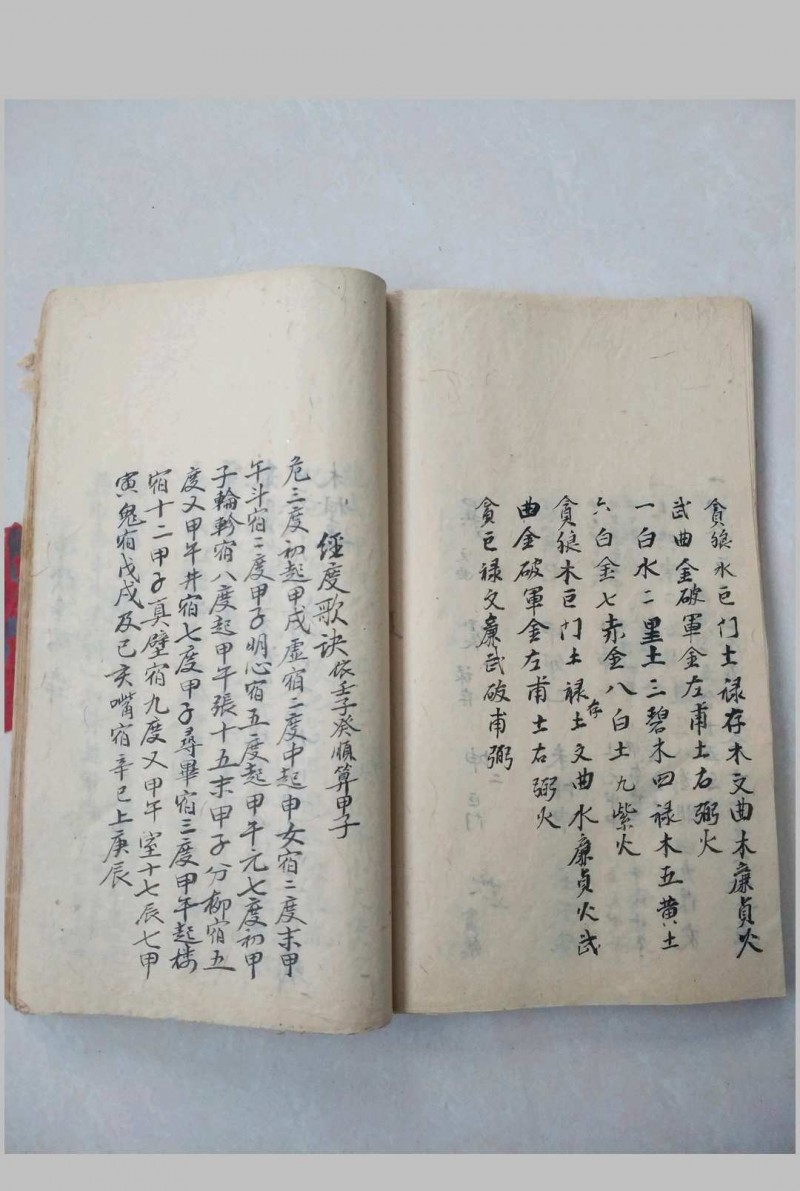 貪狼水巨门土禄存木文曲木廉貞火
武曲金破軍金左甫土右弼火
一白水二黑土三碧木四禄木五黄土
六白金七赤金八白土九紫火
貪狼木巨门土禄存土文曲水廉貞火武
曲金破軍金左甫土右弼火
貪巨禄文廉武破甫弼
經度歌訣依壬子癸順算甲子
危三度初起甲戌虚宿二度中起申女宿二度末甲
午斗宿二度甲子明心宿五度起甲午元七度初甲
子輪軫宿八度起甲午張十五末甲子分柳宿五
度又甲午井宿七度甲子尋畢宿三度甲午起楼
宿十二甲子真壁宿九度又甲午室十七辰七甲
寅鬼宿戊戌及己亥嘴宿辛巳上庚辰